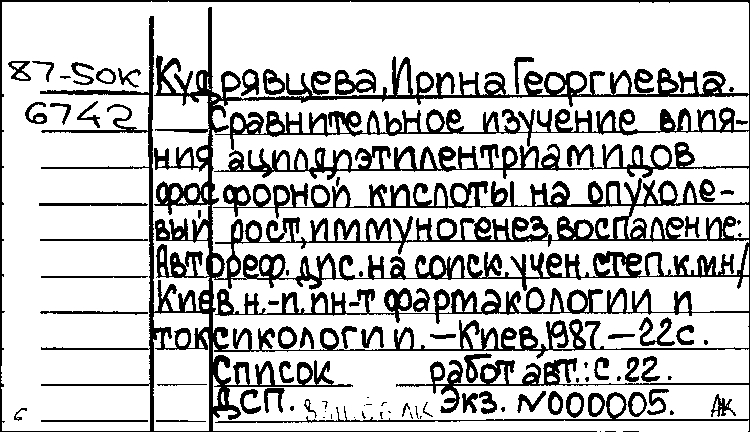 87-50к Кудрявцева, Ирина Георгиевна.
6742 Сравнительное изучение влия-
ния ацилдиэтилентриамидов
фосфорной кислоты на опухоле-
вый рост, иммуногенез, воспаление:
Автореф. дис. на соиск. учен. степ. к.м.н/
Киев. н.-и. ин-т фармакологии и
токсикологии. — Киев, 1987. — 22 с.
Список работ авт.: с. 22.
ДСП. Экз. №000005. АК
6